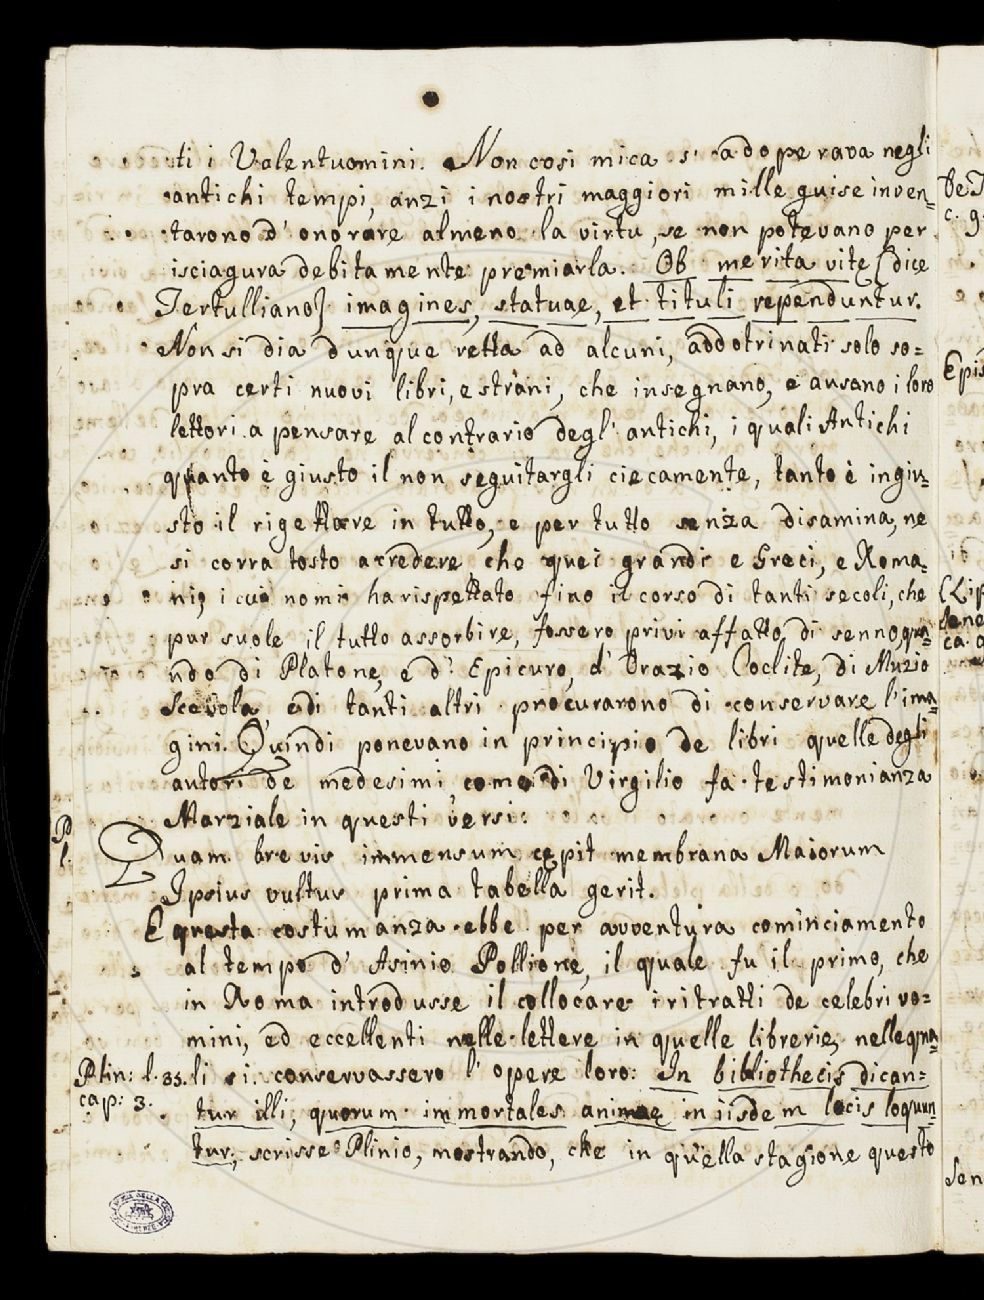 ti i Valentuomini. Non cosi mica s' adoperava negli
antichi tempi, anzi i nostri maggiori mille guise inven=
tarono d' onorare almeno la virtu, se non potevano per
isciagura debitamente premiarla. Ob merita vite (dice
Tertulliano) imagines, statuae, et tituli rependuntur.
Non si dia dunque retta ad alcuni, addotrinati solo so=
pra certi nuovi libri, e strani, che insegnano, e ausano i loro
lettori a pensare al contrario degl' antichi, i quali Antichi
quanto è giusto il non seguitargli ciecamente, tanto è ingiu=
sto il rigettare in tutto, e per tutto senza disamina, ne
si corra tosto a credere che quei grandi e Greci, e Roma=
ni, i cui nomi ha rispettato fino il corso di tanti secoli, che
pur suole il tutto assorbire, fossero privi affatto di senno, qua=
ndo di Platone, e d' Epicuro, d' Orazio Coclite, di Muzio
Scevola, e di tanti altri procurarono di conservare l' ima=
gini. Quindi ponevano in principio de libri quelle degli
autori de medesimi, come di Virgilio fa testimonianza
Marziale in questi versi:
Quam brevis immensum cepit membrana Maiorum
Ipsius vultus prima tabella gerit.
E questa costumanza ebbe per avventura cominciamento
al tempo d' Asinio Pollione, il quale fu il primo, che
in Roma introdusse il collocare i ritratti de celebri uo=
mini, ed eccellenti nelle lettere in quelle librerie, nelle qua=
Plin: l. 35. li si conservassero l' opere loro: In bibliothecis dican=
cap: 3. tur illi, quorum immortales animae in iisdem locis loquun=
tur, scrisse Plinio, mostrando, che in quella stagione questo